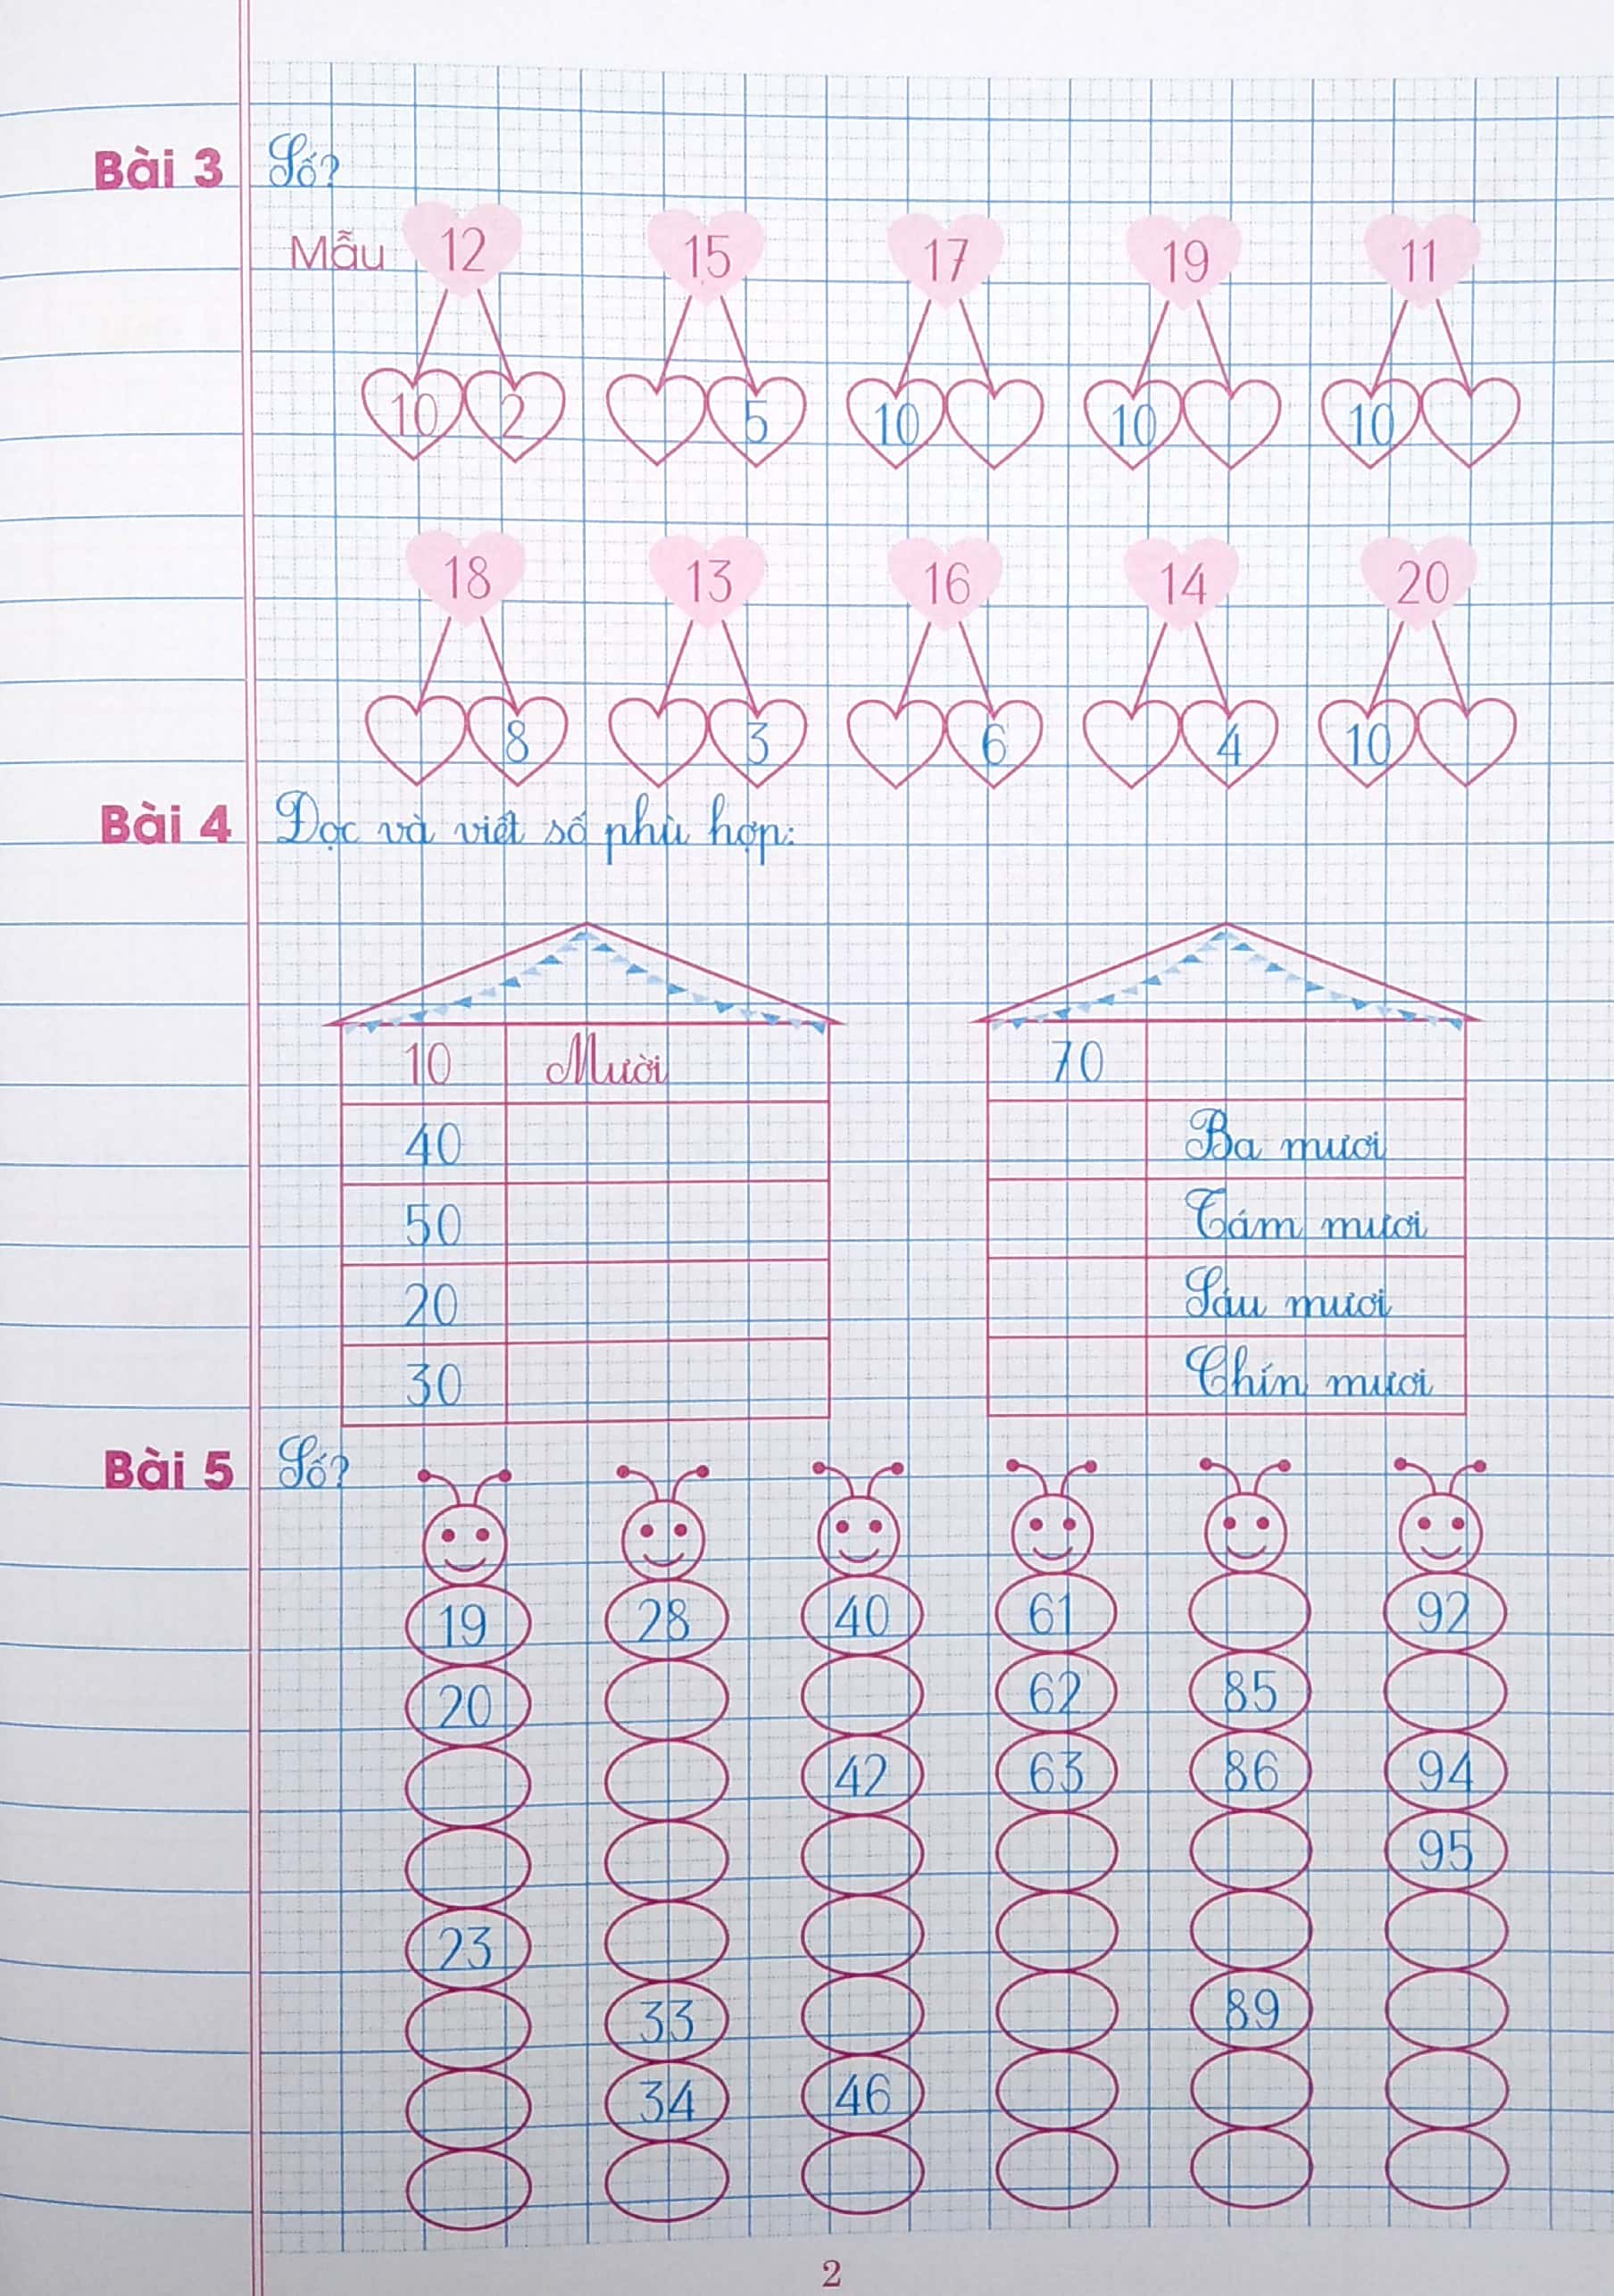 Bài 3 Số?
Mẫu 12 15 17 19 11
10 2 5 10 10 10
18 13 16 14 20
8 3 6 4 10
Bài 4 Đọc và viết số phù hợp:
10 Mười 70
40 Ba mươi
50 Tám mươi
20 Sáu mươi
30 Chín mươi
Bài 5 Số?
19 28 40 61 92
20 62 85
42 63 86 94
95
23
33 89
34 46
2